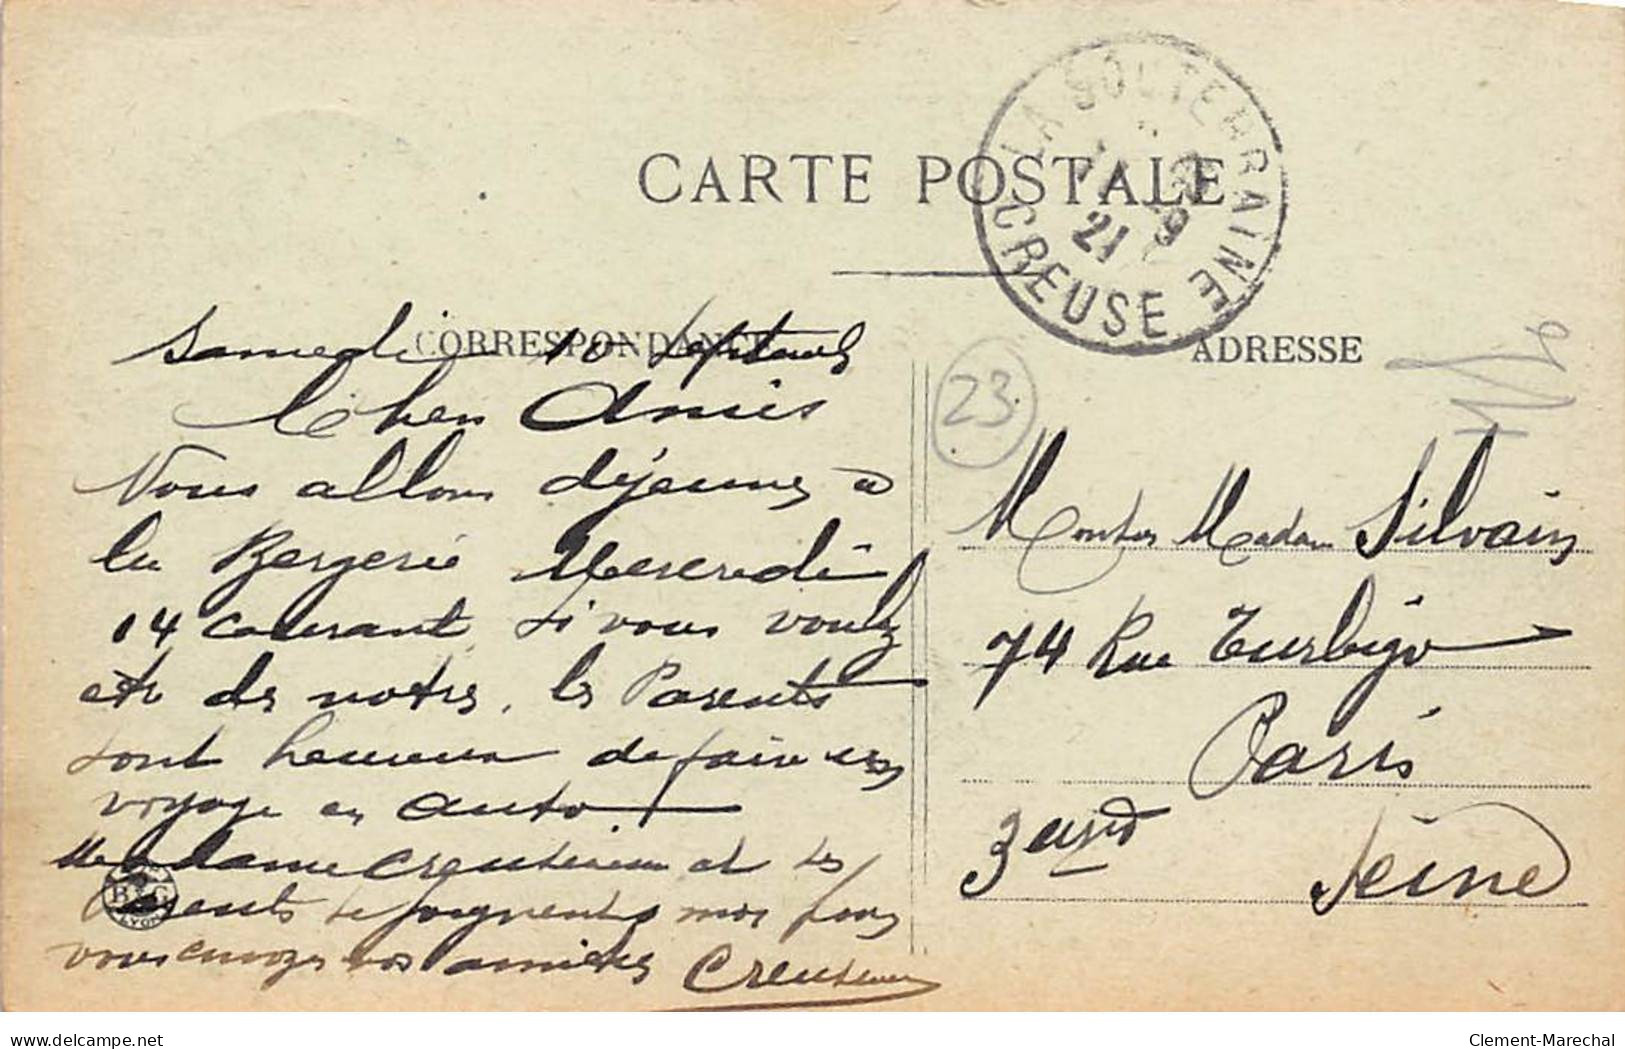 CARTE POSTALE
LA SOUTERRAINE
21 9
CREUSE
CORRESPONDANCE
ADRESSE
23
Samedi 10 Septembre
Chers Amis
Nous allons déjeuner à
la Bergerie Mercredi
14 courant, si vous voulez
être des notres, les Parents
sont heureux de faire un
voyage en auto
Madame et les
Parents se joignent a moi pour
vous envoyer nos amitiés
B & C
LYON
Monsieur Madame Silvain
74 Rue Turbigo
Paris
3 arrd
Seine
delcampe.net
Clement-Marechal